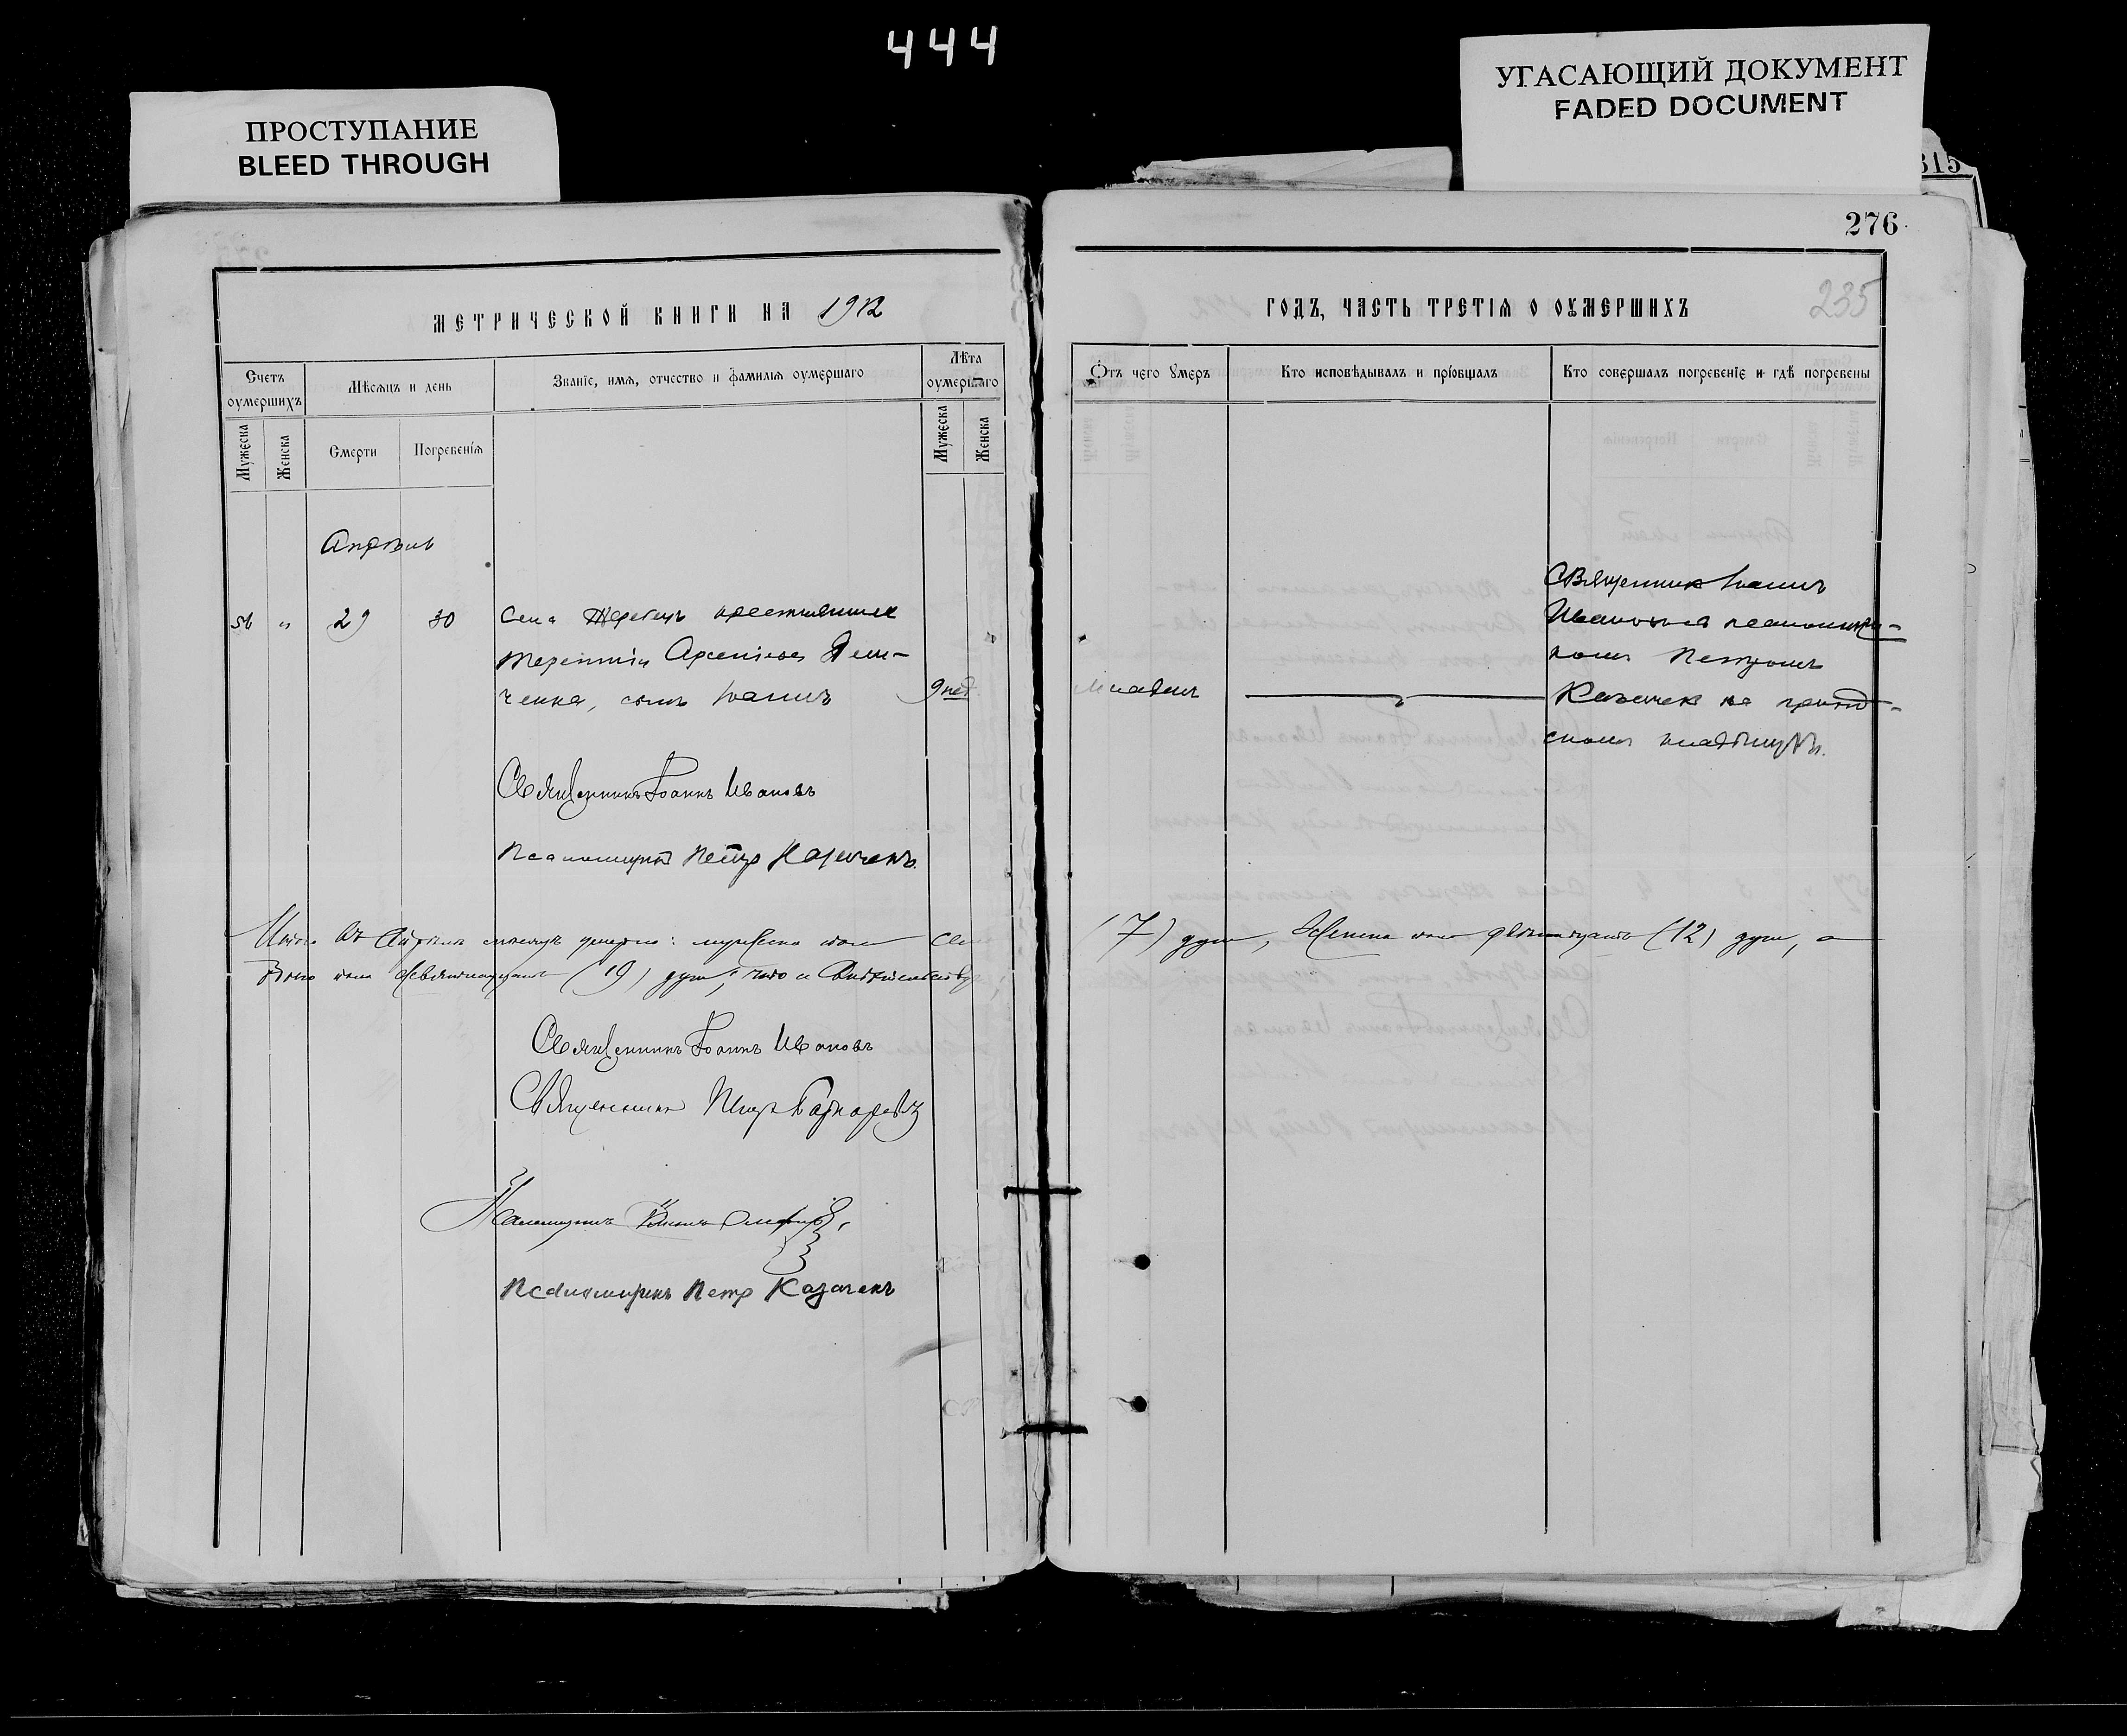 444
ПРОСТУПАНИЕ
BLEED THROUGH
УГАСАЮЩИЙ ДОКУМЕНТ
FADED DOCUMENT
315
276
235
МЕТРИЧЕСКОЙ КНИГИ НА 1912
ГОДЪ, ЧАСТЬ ТРЕТІѦ О ОУМЕРШИХЪ
Счетъ оумершихъ
Мѣсяцъ и день
Званіе, имя, отчество и фамилія оумершаго
Лѣта оумершаго
Мужеска
Женска
Смерти
Погребенія
Мужеска
Женска
Отъ чего умеръ
Кто исповѣдывалъ и пріобщалъ
Кто совершалъ погребеніе и гдѣ погребены
Апрѣль
56 " 29 30 Села Жеребецъ крестьянина
Терентія Арсеніева
ченка, сынъ Іоаннъ 9 нед.
Младен.
Священник Іоаннъ
Ивановъ с псаломщи-
комъ Петромъ
Казачек на приход-
скомъ кладбищѣ.
Священникъ Іоаннъ Ивановъ
Псаломщикъ Петръ Казачекъ.
Итого въ Апрѣлѣ мѣсяцѣ умерло: мужеска пола семь (7) душ, Женска пола двѣнадцать (12) душ, а
всего пола девятнадцать (19) душ, что и свидѣтельству
Священникъ Іоаннъ Ивановъ
Священникъ
Псаломщикъ
Псаломщикъ Петр Казачекъ